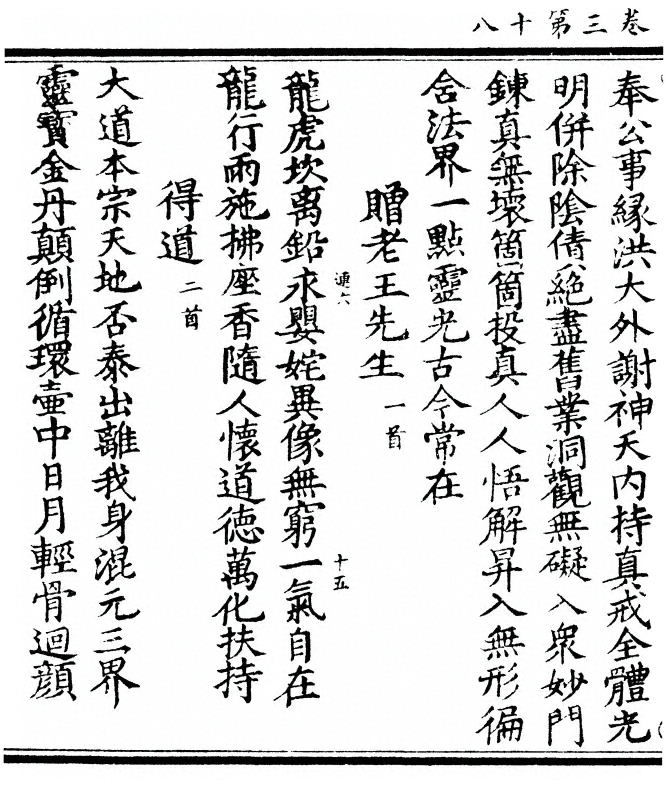 卷三第十八
奉公事緣洪大外謝神天内持真戒全體光
明併除陰債絕盡舊業洞觀無礙入衆妙門
鍊真無壞箇箇投真人人悟解昇入無形徧
含法界一點靈光古今常在
贈老王先生 一首
龍虎坎离鉛永嬰姹異像無窮一氣自在
連六
十五
龍行雨施拂座香隨人懷道德萬化扶持
得道 二首
大道本宗天地否泰出離我身混元三界
靈寶金丹顛倒循環壷中日月輕骨迴顔